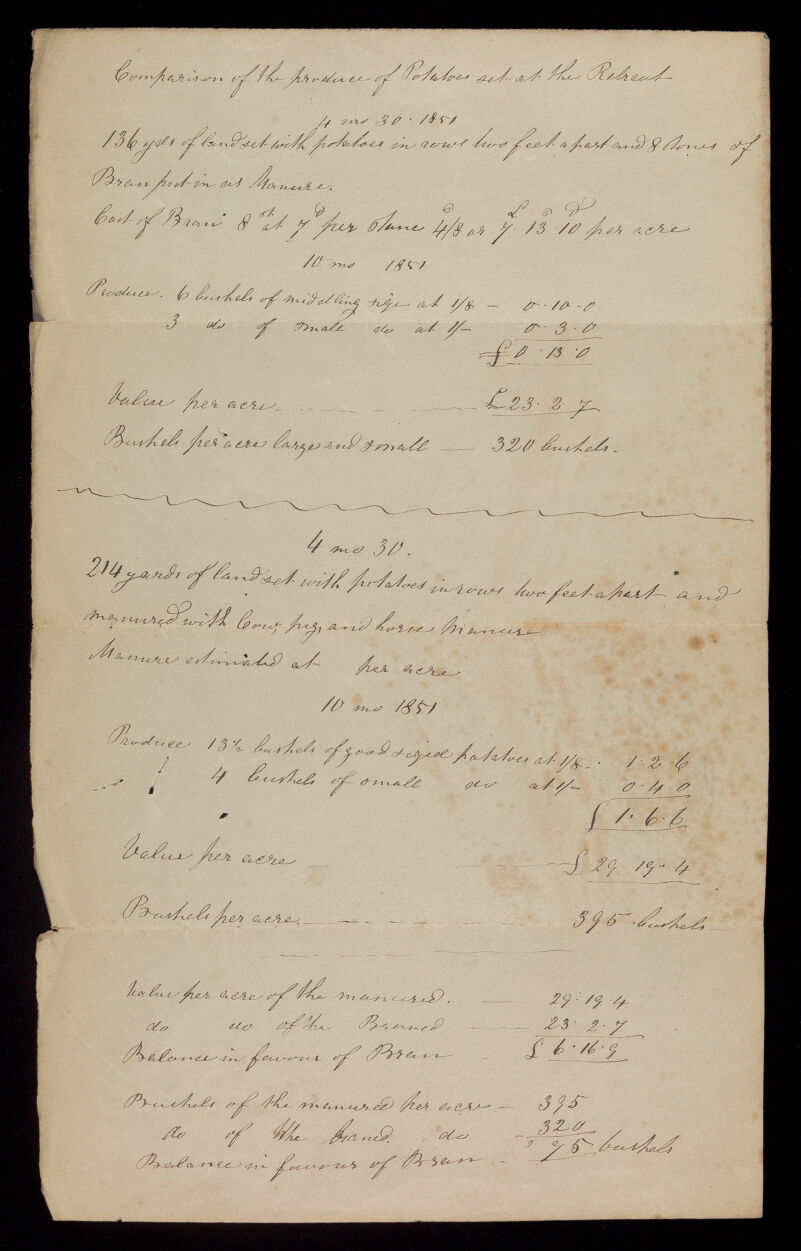 Comparison of the produce of Potatoes set at the Retreat
4 mo 30 · 1851
136 yds of land set with potatoes in rows two feet apart and 8 stones of
Bran put in as Manure.
Cost of Bran 8 st at 7 d per Stone 4/8 or £ 7 · 13 s · 10 d per acre
10 mo 1851
Produce. 6 bushels of middling size at 1/8 — 0 · 10 · 0
3 do of small do at 1/- 0 · 3 · 0
£ 0 · 13 · 0
Value per acre — £ 23 · 2 · 7
Bushels per acre large and small — 320 bushels -
4 mo 30 .
214 yards of land set with potatoes in rows two feet apart and
manured with Cow, pig, and horse Manure
Manure estimated at per acre
10 mo 1851
Produce 13½ bushels of good sized potatoes at 1/8 - 1 · 2 · 6
4 bushels of small do at 1/- 0 · 4 · 0
£ 1 · 6 · 6
Value per acre — £ 29 · 19 · 4
Bushels per acre — 395 bushels -
Value per acre of the manured. — 29 · 19 · 4
do do of the Braned — 23 · 2 · 7
Balance in favour of Bran - £ 6 · 16 · 9
Bushels of the manured per acre — 395
do of the braned. do — 320
Balance in favour of Bran - 75 bushels